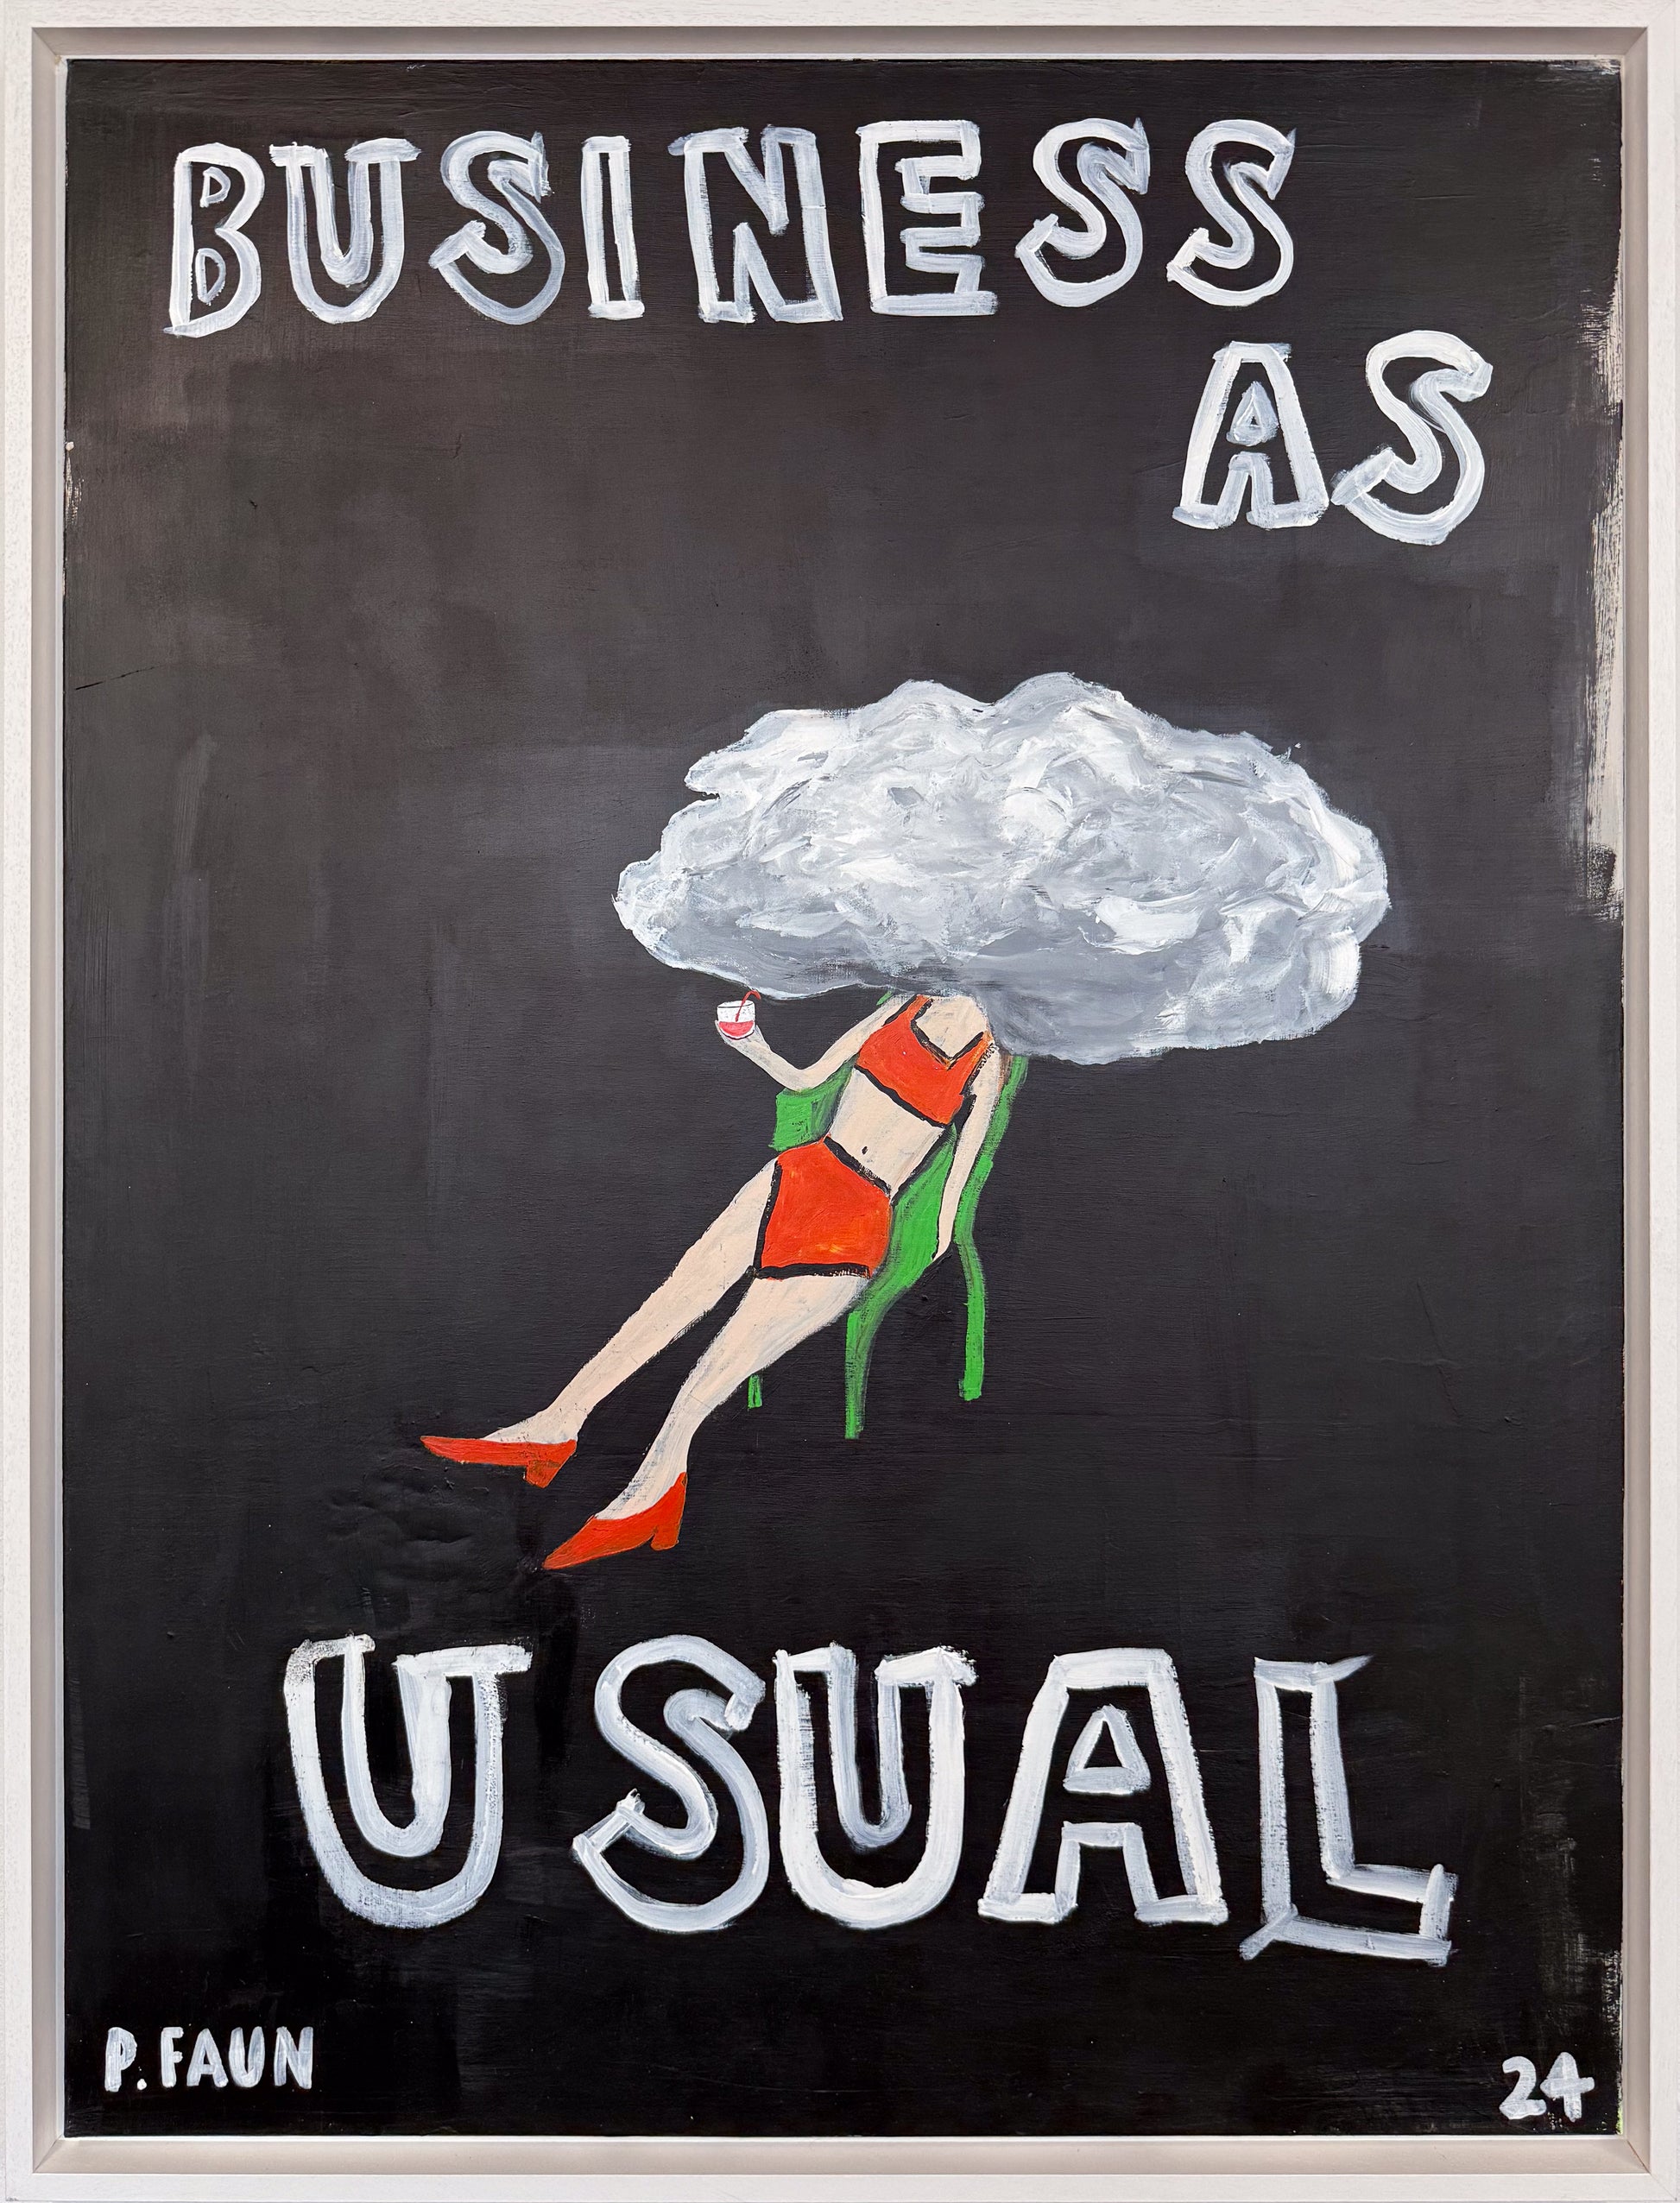 BUSINESS
AS
USUAL
P. FAUN
24